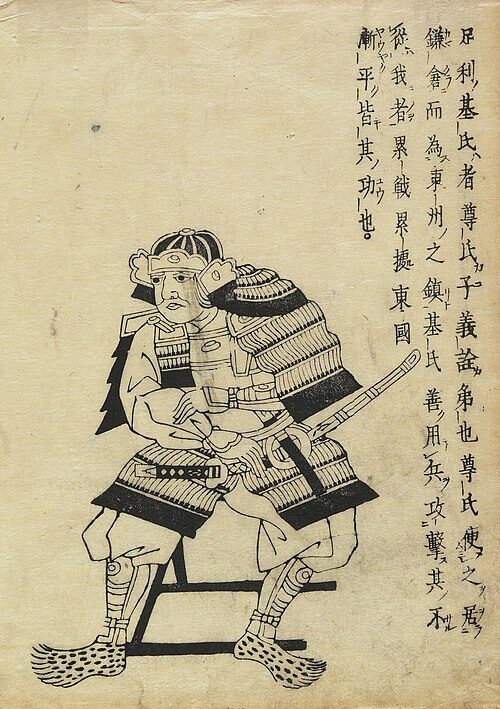 足利基氏者尊氏子義詮弟也尊氏使之居
鎌倉而為東州之鎮基氏善用兵攻撃其不
從我者累戦累擄東國
漸平皆其功也。